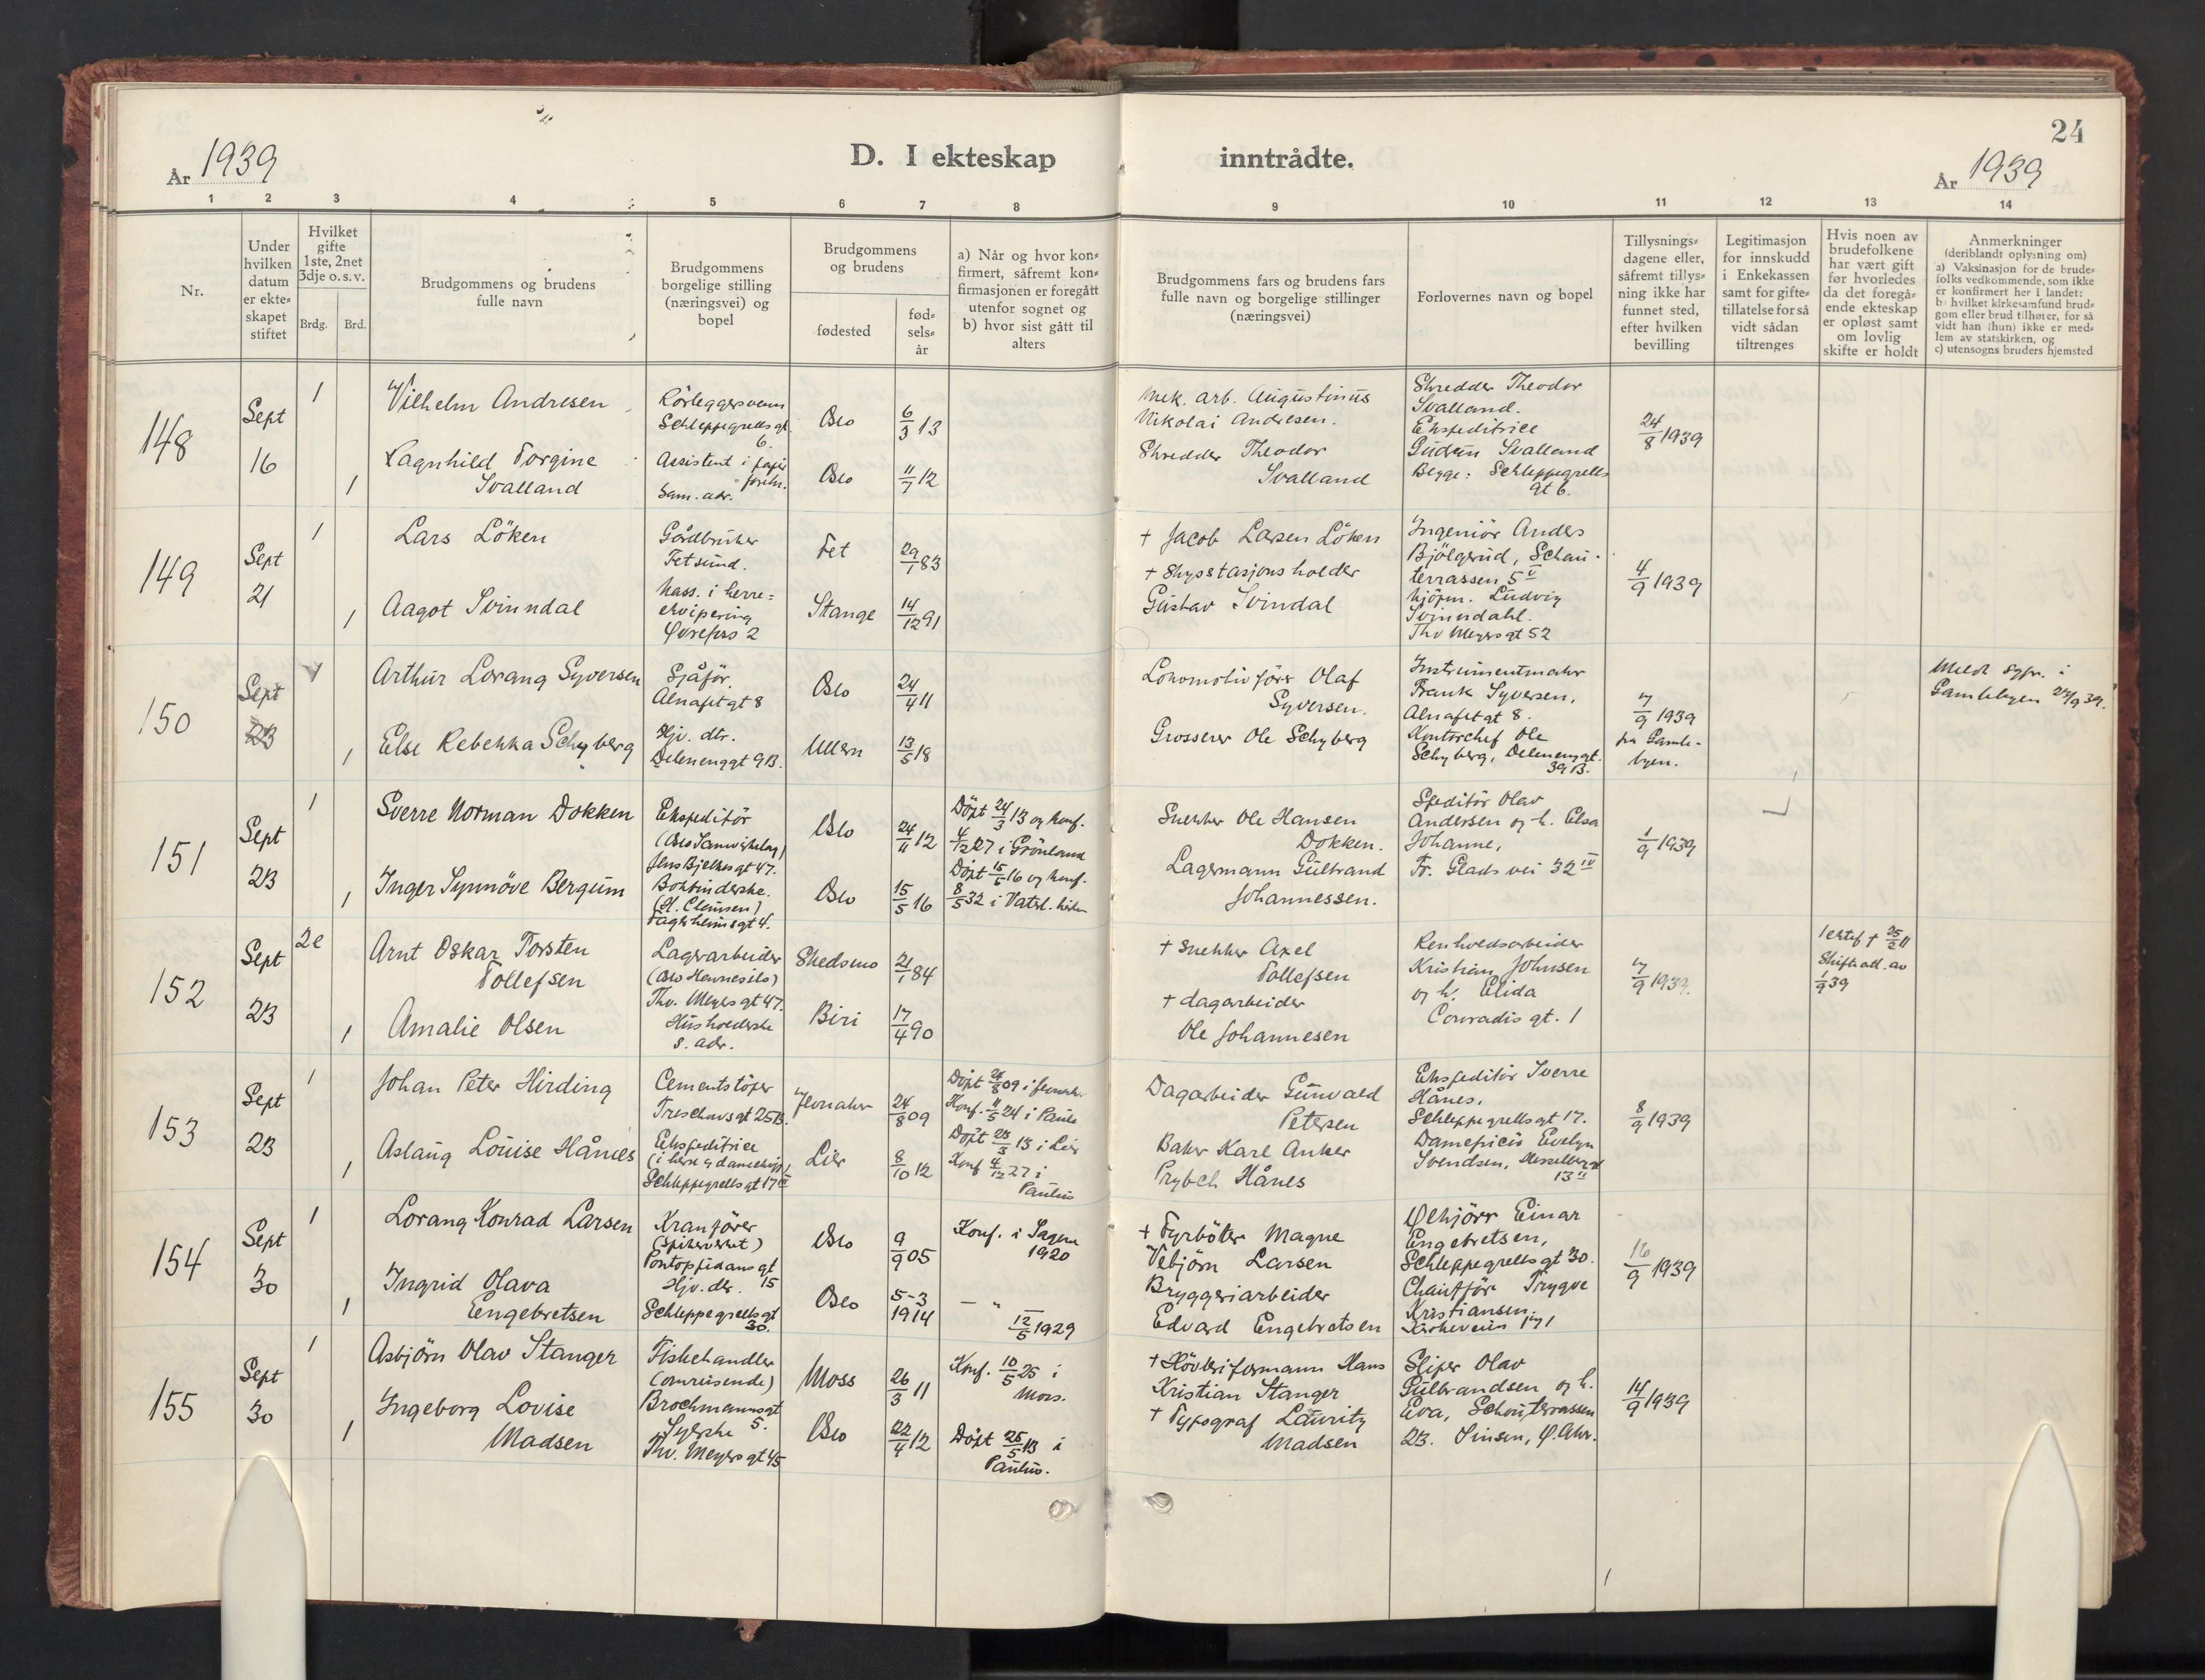 24
År 1939
D. I ekteskap inntrådte.
År 1939
1 2 3 4 5 6 7 8 9 10 11 12 13 14
Nr.
Under
hvilken
datum
er ekte-
skapet
stiftet
Hvilket
gifte
1ste, 2net
3dje o. s. v.
Brdg. Brd.
Brudgommens og brudens
fulle navn
Brudgommens
borgelige stilling
(næringsvei) og
bopel
Brudgommens
og brudens
fødested
fød-
sels-
år
a) Når og hvor kon-
firmert, såfremt kon-
firmasjonen er foregått
utenfor sognet og
b) hvor sist gått til
alters
Brudgommens fars og brudens fars
fulle navn og borgelige stillinger
(næringsvei)
Forlovernes navn og bopel
Tillysnings-
dagene eller,
såfremt tillys-
ning ikke har
funnet sted,
efter hvilken
bevilling
Legitimasjon
for innskudd
i Enkekassen
samt for gifte-
tillatelse for så
vidt sådan
tiltrenges
Hvis noen av
brudefolkene
har vært gift
før hvorledes
da det foregå-
ende ekteskap
er opløst samt
om lovlig
skifte er holdt
Anmerkninger
(deriblandt oplysning om)
a) Vaksinasjon for de brude-
folks vedkommende, som ikke
er konfirmert her i landet:
b) hvilket kirkesamfund brud-
gom eller brud tilhører, for så
vidt han (hun) ikke er med-
lem av statskirken, og
c) utensogns bruders hjemsted
148
Sept
16
1
1
Vilhelm Andresen
Ragnhild Torgine
Svalland
Rörleggersvenn
Schleppegrells gt.
6.
Assistent i papir
forretn.
Sam. adr.
Oslo
6/3 13
Oslo
11/7 12
Mek. arb. Augustinus
Nikolai Andresen.
Skredder Theodor
Svalland
Skredder Theodor
Svalland.
Ekspeditrice
Gudrun Svalland
Begge: Schleppegrells
gt 6.
24/8 1939
149
Sept
21
1
1
Lars Löken
Aagot Svinndal
Gårdbruker
Fetsund.
Kass. i herre=
ekvipering
Øvrefoss 2
Fet
29/1 83
Stange
14/12 91
+ Jacob Larsen Löken
+ Skysstasjonsholder
Gustav Svindal
Ingeniör Anders
Bjölgerud, Schou-
terrassen 5 V
Kjöpm. Ludvig
Svinndahl.
Thv Meyersgt 52
4/9 1939
150
Sept
23
1
1
Arthur Lorang Syversen
Else Rebekka Schyberg
Sjåför.
Alnafetgt 8
Hjv. dtr.
Delenenggt 9B.
Oslo
24/4 11
Ullern
13/5 18
Lokomotivförer Olaf
Syversen.
Grosserer Ole Schyberg
Instrumentmaker
Frank Syversen,
Alnafetgt 8.
Kontorchef Ole
Schyberg, Delenenggt.
39 B.
7/9 1939
fra Gamle-
byen.
Meldt sogpr. i
Gamlebyen 25/9 39.
151
Sept
23
1
1
Sverre Norman Dokken
Inger Synnöve Bergum
Ekspeditör
(Oslo Samvirkelag)
Jens Bjelkes gt 47.
Bokbinderske.
(H. Clausen)
Fagerheimsgt 4.
Oslo
24/11 12
Oslo
15/5 16
Döpt 24/3 13 og konf.
4/12 27 i Grönland
Döpt 15/5 16 og konf.
8/5 32 i Vatrl. kirken
Snekker Ole Hansen
Dokken.
Lagermann Gulbrand
Johannessen.
Speditör Olav
Andersen og h. Elsa
Johanne,
Fr. Glads vei 32 IV
1/9 1939
152
Sept
23
2e
1
Arnt Oskar Torsten
Tollefsen
Amalie Olsen
Lagerarbeider
(Oslo Havnesilo)
Thv. Meyers gt 47.
Husholderske
s. adr.
Skedsmo
21/1 84
Biri
17/4 90
+ Snekker Axel
Tollefsen
+ dagarbeider
Ole Johannesen
Renholdsarbeider
Kristian Johnsen
og h. Elida
Conradis gt. 1
7/9 1939.
1 ektef + 25/2 11
Skifteatt. av
1/9 39
153
Sept
23
1
1
Johan Peter Hirding
Aslaug Louise Hånes
Cementstöper
Treschowsgt 25B.
Ekspeditrice
Schleppegrellsgt 17 III
Jevnaker
24/8 09
Lier
8/10 12
Döpt 24/8 09 i Jevnaker
Konf. 11/5 24 i Paulus
Döpt 23/3 13 i Lier
Konf 4/12 27 i
Paulus
Dagarbeider Gunvald
Petersen
Baker Karl Anker
Prybch Hånes
Ekspeditör Sverre
Hånes,
Schleppegrellsgt 17.
Damefrisör Evelyn
Svendsen, Hesselberggt
13 II
8/9 1939
154
Sept
30
1
1
Lorang Konrad Larsen
Ingrid Olava
Engebretsen
Kranförer
(Spikerverket)
Pontoppidans gt
15
Hjv. dtr.
Schleppegrells gt
30.
Oslo
9/9 05
Oslo
5-3
1914
Konf. i Sagene
1920
— " —
12/5 1929
+ Fyrböter Magne
Vebjörn Larsen
Bryggeriarbeider
Edvard Engebretsen
Ölkjörer Einar
Engebretsen,
Schleppegrells gt 30.
Chauffför Trygve
Kristiansen.
Kirkeveien 171
16/9 1939
155
Sept
30
1
1
Asbjörn Olav Stanger
Ingeborg Lovise
Madsen
Fiskehandler
(omreisende)
Brochmannsgt
5.
Syerske
Thv. Meyers gt 45
Moss
26/3 11
Oslo
22/4 12
Konf. 10/5 25 i
Moss.
Döpt 25/5 13 i
Paulus.
+ Hövleriformann Hans
Kristian Stanger
+ Typograf Lauritz
Madsen
Sliper Olav
Gulbrandsen og h.
Eva, Schouterrassen
23. Sinsen, Ø. Aker.
14/9 1939